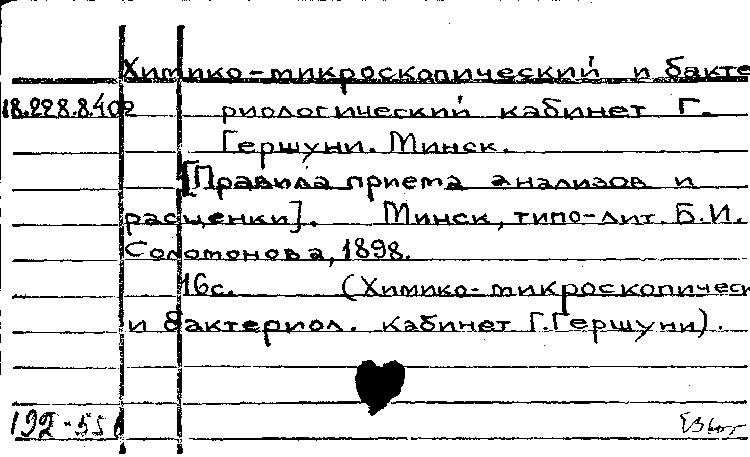 Химико-микроскопический и бакте
18.228.8.402 риологический кабинет Г.
Гершуни. Минск.
[Правила приема анализов и
расценки]. Минск, типо-лит. Б.И.
Соломонова, 1898.
16с. (Химико-микроскопическ
и бактериол. кабинет Г.Гершуни).